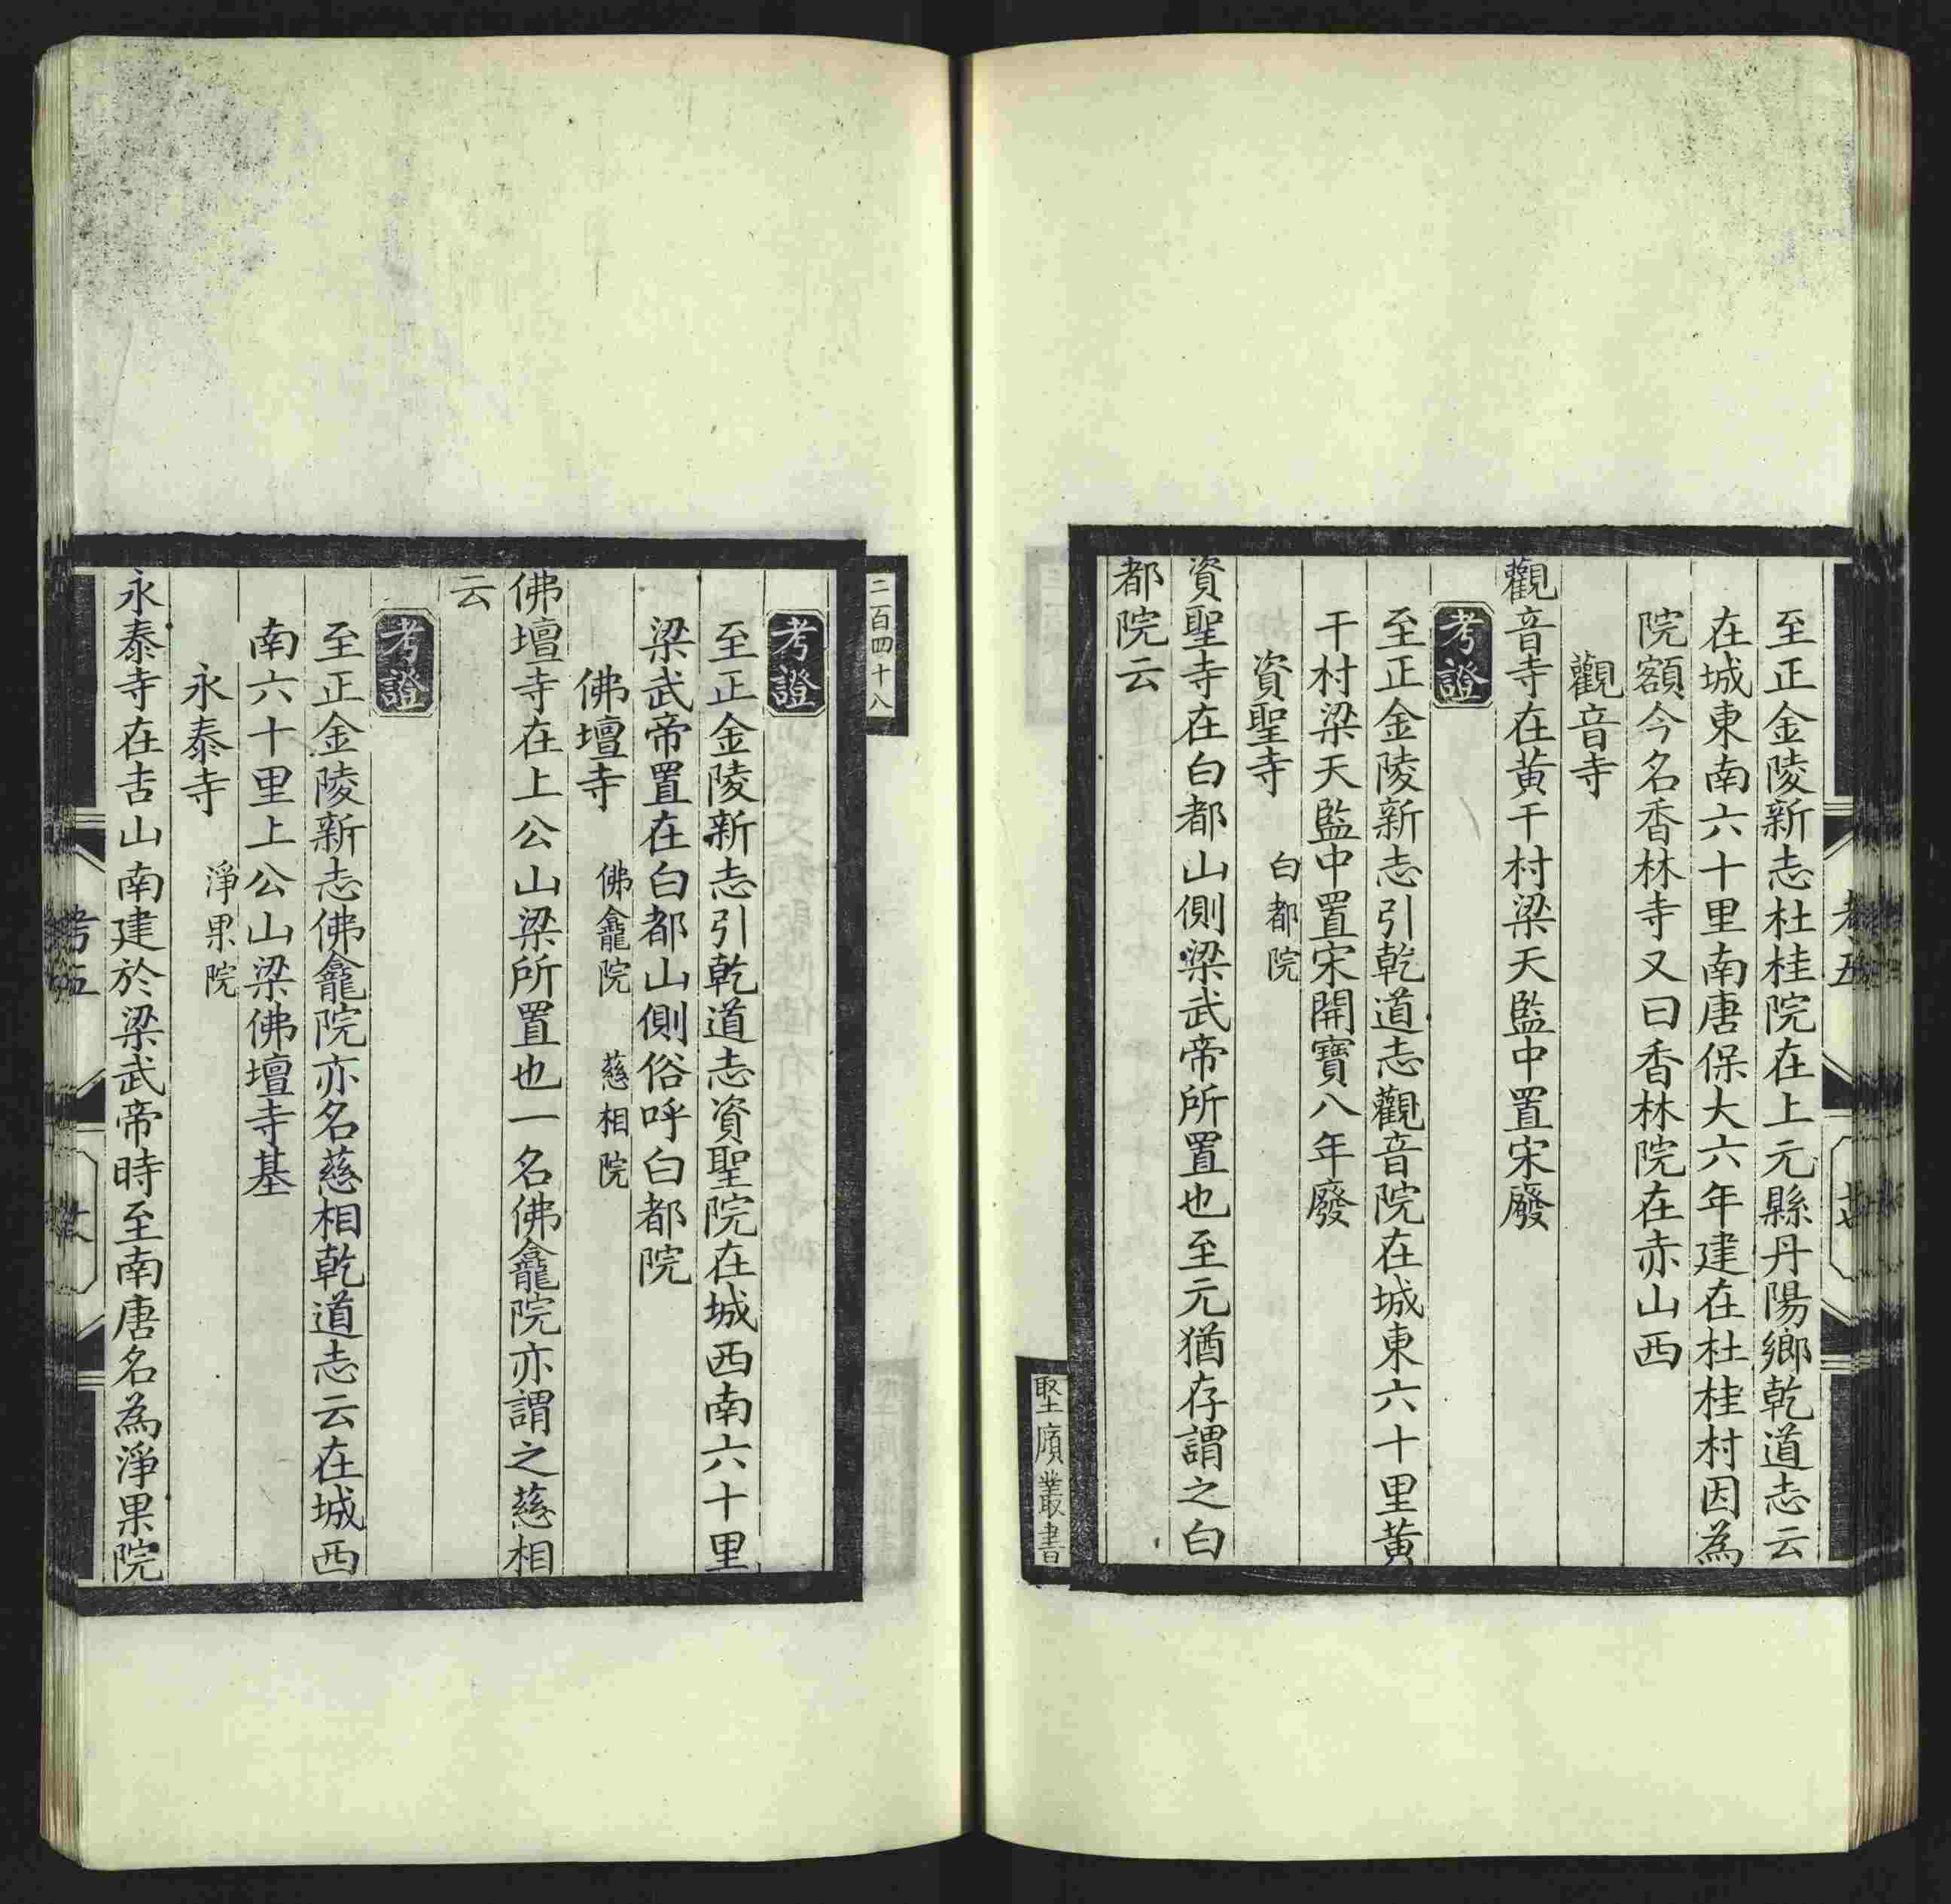 至正金陵新志杜桂院在上元縣丹陽鄉乾道志云
在城東南六十里南唐保大六年建在杜桂村因為
院額今名香林寺又曰香林院在赤山西
觀音寺
觀音寺在黃干村梁天監中置宋廢
考證
至正金陵新志引乾道志觀音院在城東六十里黃
干村梁天監中置宋開寶八年廢
資聖寺 白都院
資聖寺在白都山側梁武帝所置也至元猶存謂之白
都院云
堅廎叢書
二百四十八
考證
至正金陵新志引乾道志資聖院在城西南六十里
梁武帝置在白都山側俗呼白都院
佛壇寺 佛龕院 慈相院
佛壇寺在上公山梁所置也一名佛龕院亦謂之慈相
云
考證
至正金陵新志佛龕院亦名慈相乾道志云在城西
南六十里上公山梁佛壇寺基
永泰寺 淨果院
永泰寺在吉山南建於梁武帝時至南唐名為淨果院